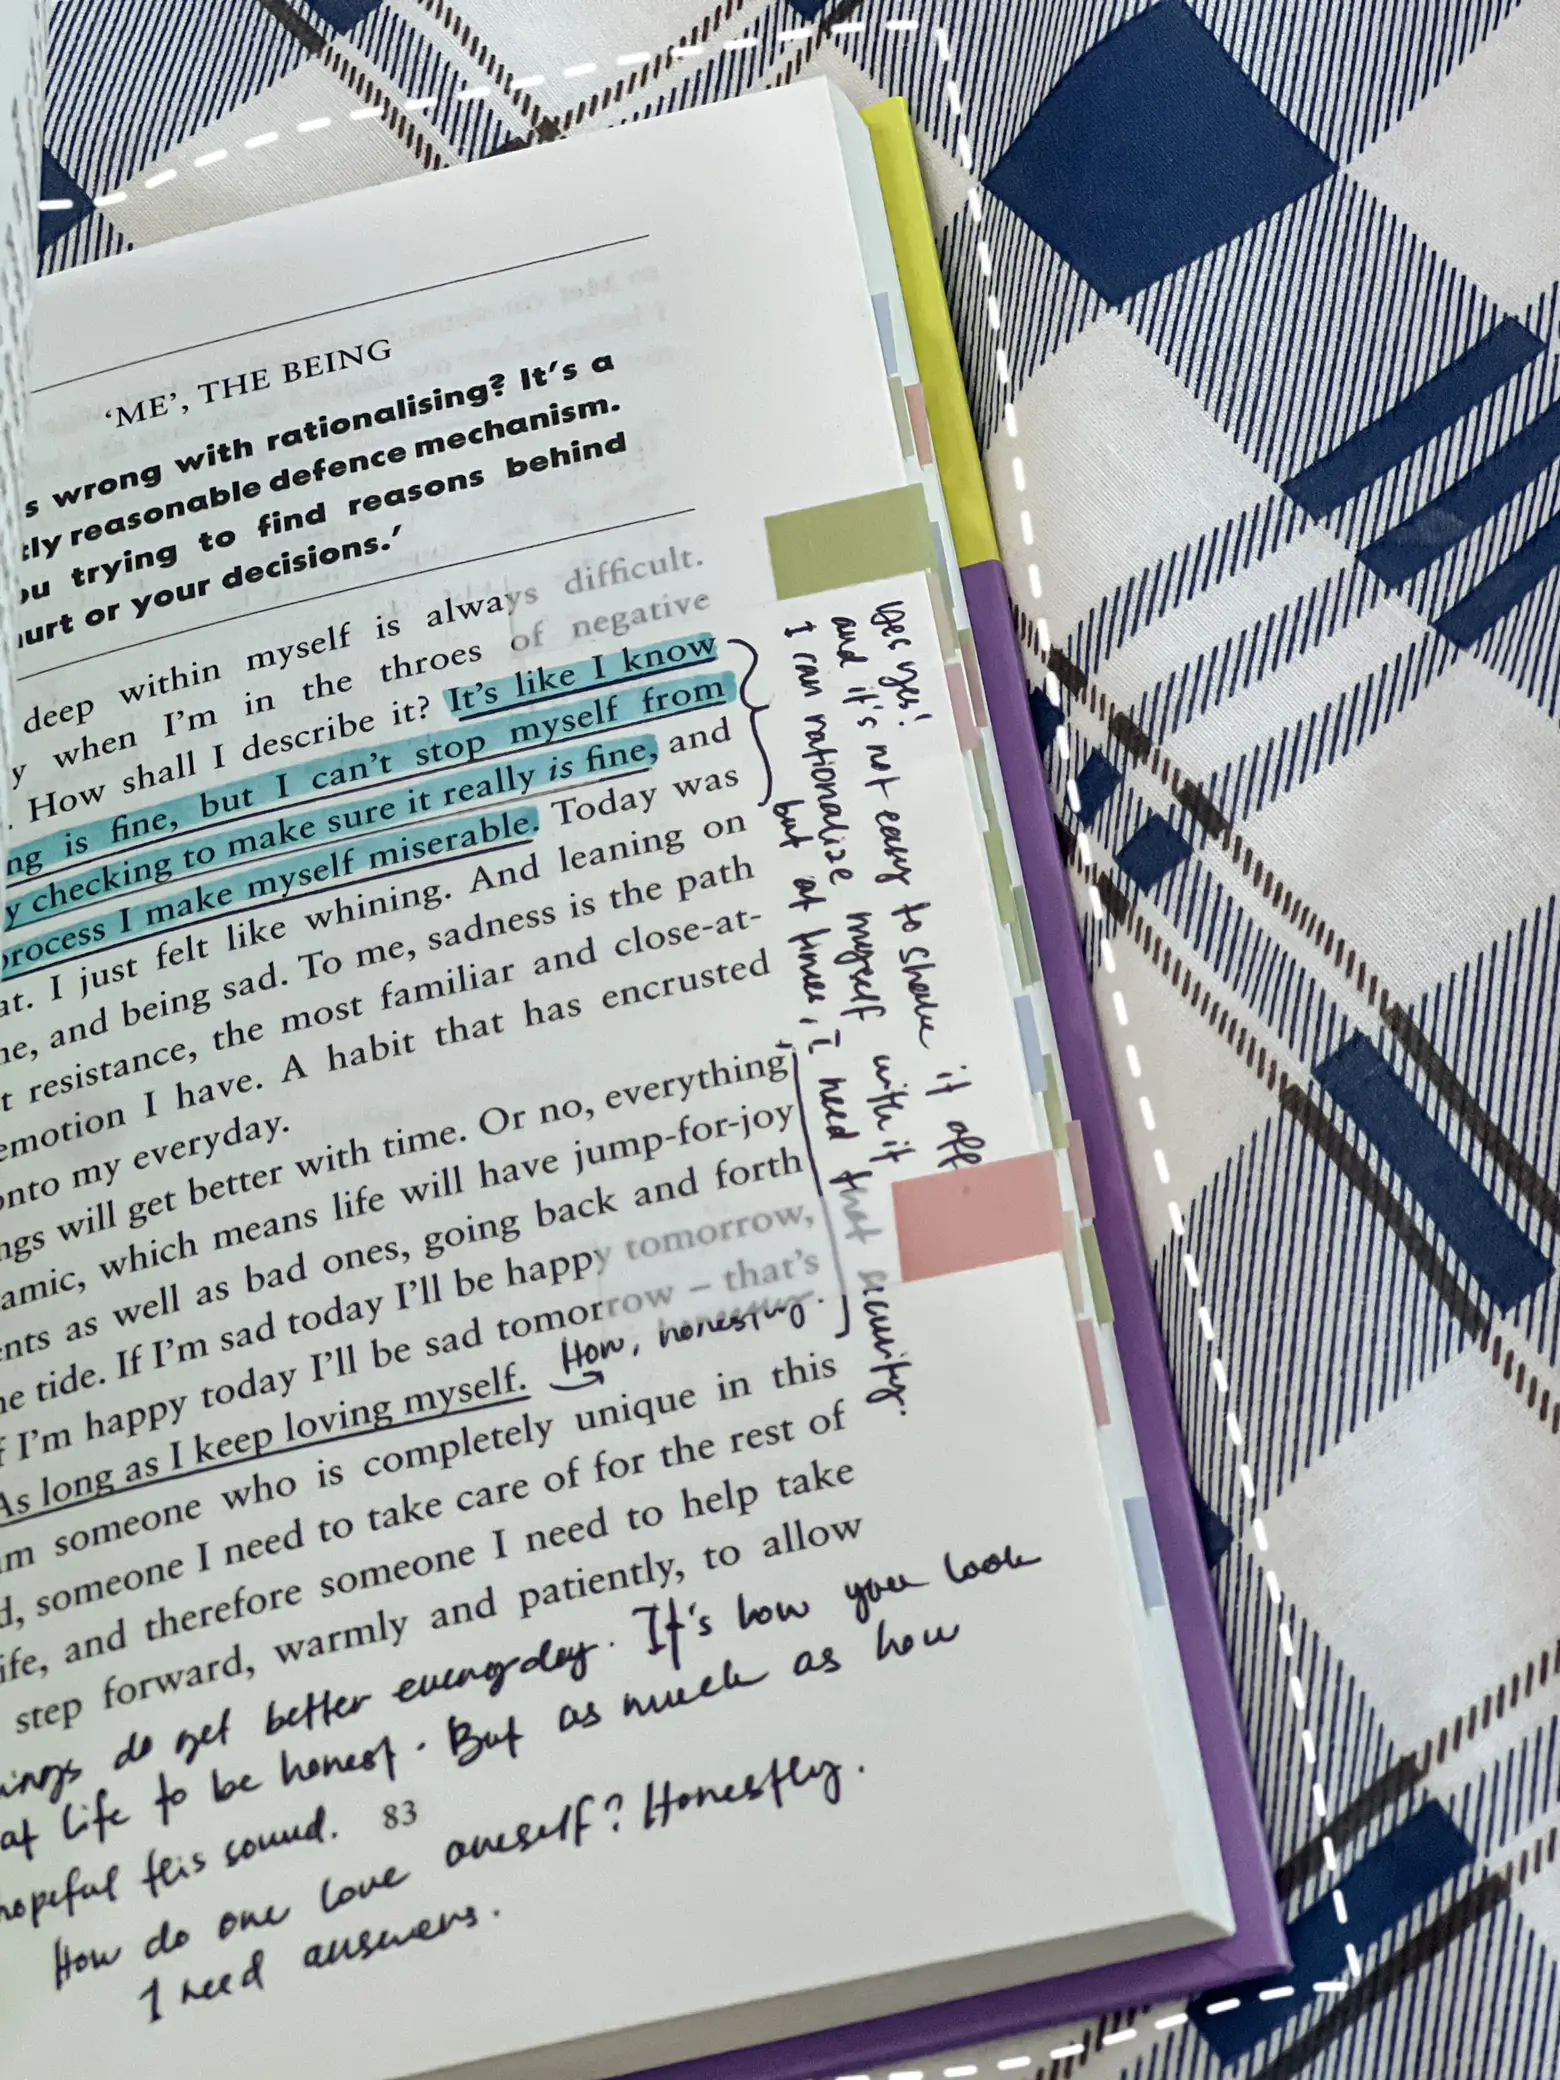 'ME', THE BEING
s wrong with rationalising? It's a
tly reasonable defence mechanism.
ou trying to find reasons behind
urt or your decisions.'
deep within myself is always difficult.
y when I'm in the throes of negative
. How shall I describe it? It's like I know
ng is fine, but I can't stop myself from
y checking to make sure it really is fine, and
process I make myself miserable. Today was
at. I just felt like whining. And leaning on
ne, and being sad. To me, sadness is the path
t resistance, the most familiar and close-at-
emotion I have. A habit that has encrusted
onto my everyday.
ngs will get better with time. Or no, everything
amic, which means life will have jump-for-joy
ents as well as bad ones, going back and forth
ne tide. If I'm sad today I'll be happy tomorrow,
f I'm happy today I'll be sad tomorrow – that's
As long as I keep loving myself. How, honestly.
m someone who is completely unique in this
d, someone I need to take care of for the rest of
ife, and therefore someone I need to help take
step forward, warmly and patiently, to allow
ings do get better everyday. It's how you look
at life to be honest. But as much as how
hopeful this sound. 83
How do one love oneself? Honestly.
I need answers.
yes yes!
and it's not easy to shake it off
I can rationalize myself with it
but at times, I need that security.